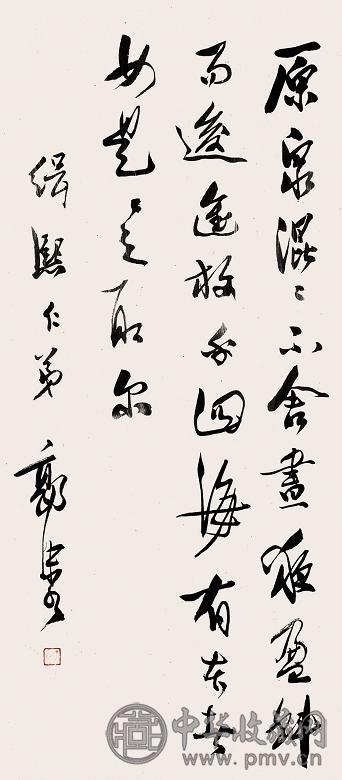 原泉混〻不舍晝夜盈科
而後進放乎四海有本者
如是〻之取尔
緝熙仁弟 郭沫若
中华收藏网
www.pmv.cn